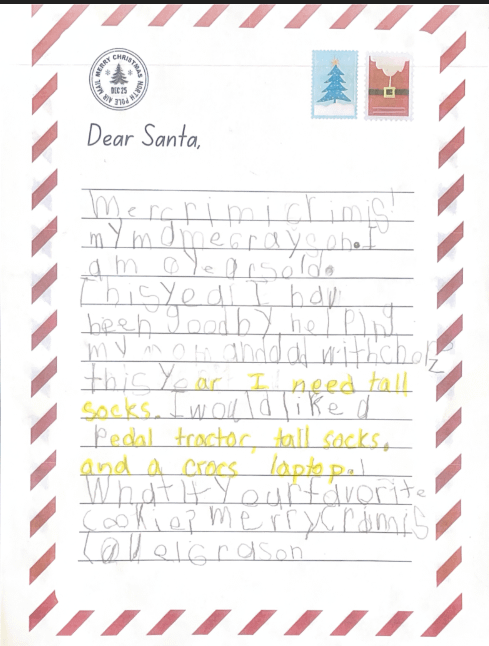 MERRY CHRISTMAS
DEC 25
NORTH POLE AIR MAIL
Dear Santa,
Mercrimi crimis!
my name Grayson. I
am years old.
This year I hav
been good by helping
my mom and with
this year I need tall
socks. I would like a
Pedal tractor, tall socks,
and a crocs laptop.
What it your favorite
cookie? merry crimis